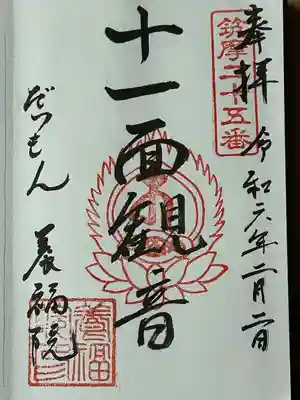 筑摩二十五番
奉拝 令和六年二月二日
十一面観音
だいもん 養福院